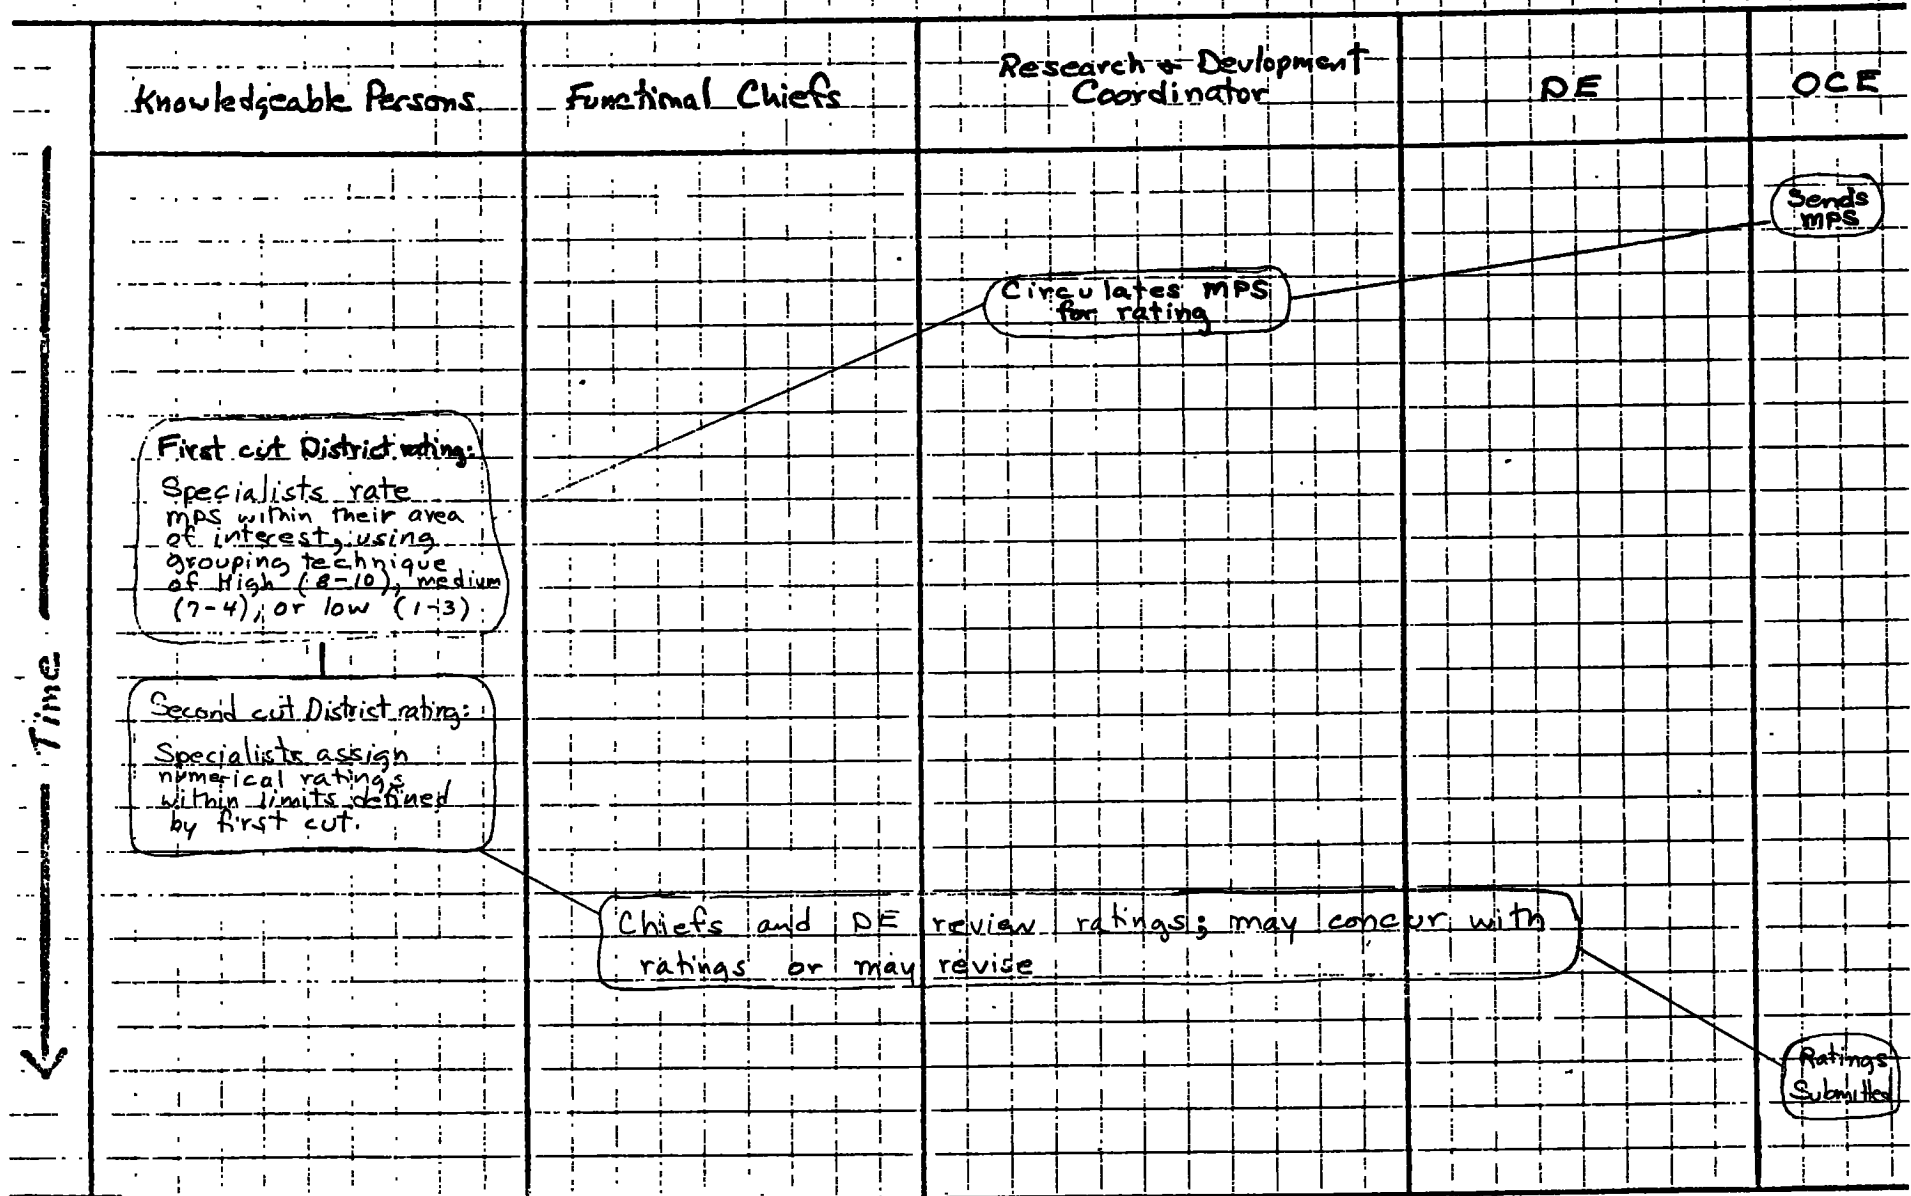 Knowledgeable Persons
Functional Chiefs
Research & Devlopment
Coordinator
DE
OCE
Time
Sends
MPS
Circulates MPS
for rating
First cut District rating:
Specialists rate
MPS within their area
of interest, using
grouping technique
of High (8-10), medium
(7-4), or low (1-3)
Second cut District rating:
Specialists assign
numerical ratings
within limits defined
by first cut.
Chiefs and DE review ratings; may concur with
ratings or may revise
Ratings
Submitted